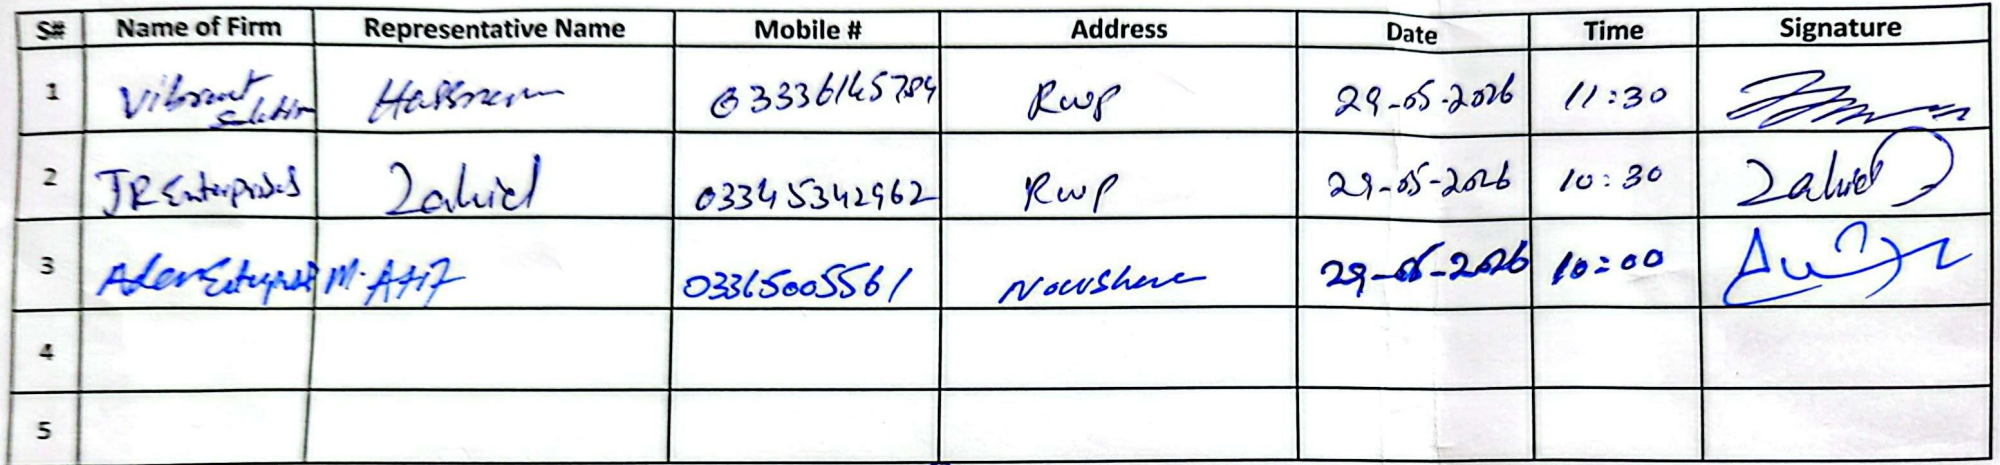 S# Name of Firm Representative Name Mobile # Address Date Time Signature
1 Vibrant Solution Hassnain Rwp 29-05-2026 11:30
2 JR Enterprises Zahid 03345342962 Rwp 29-05-2026 10:30 Zahid
3 M. Atif 03365005561 Nowshera 29-05-2026 10:00
4
5